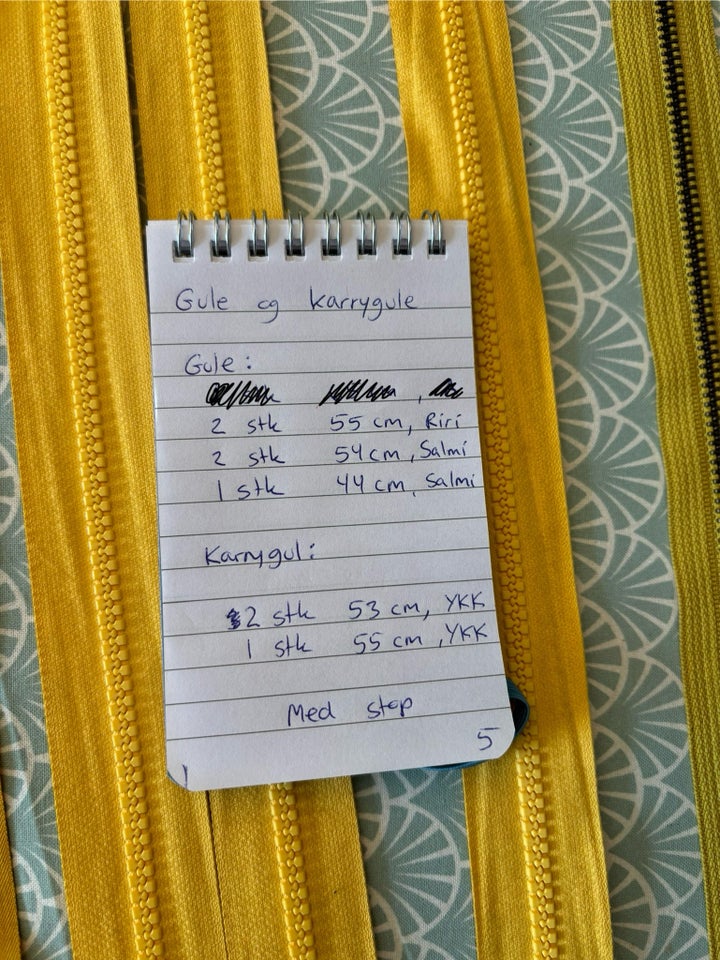 Gule og karrygule
Gule:
2 stk 55 cm, Riri
2 stk 54 cm, Salmi
1 stk 44 cm, Salmi
Karrygul:
2 stk 53 cm, YKK
1 stk 55 cm, YKK
Med stop
5